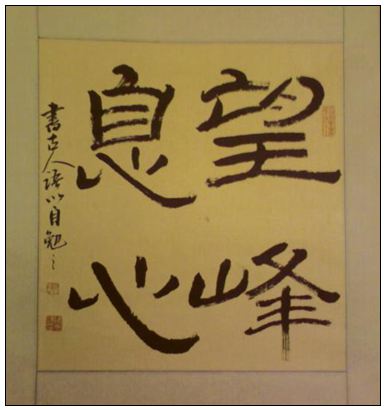 望峰
息心
書古人語以自勉之